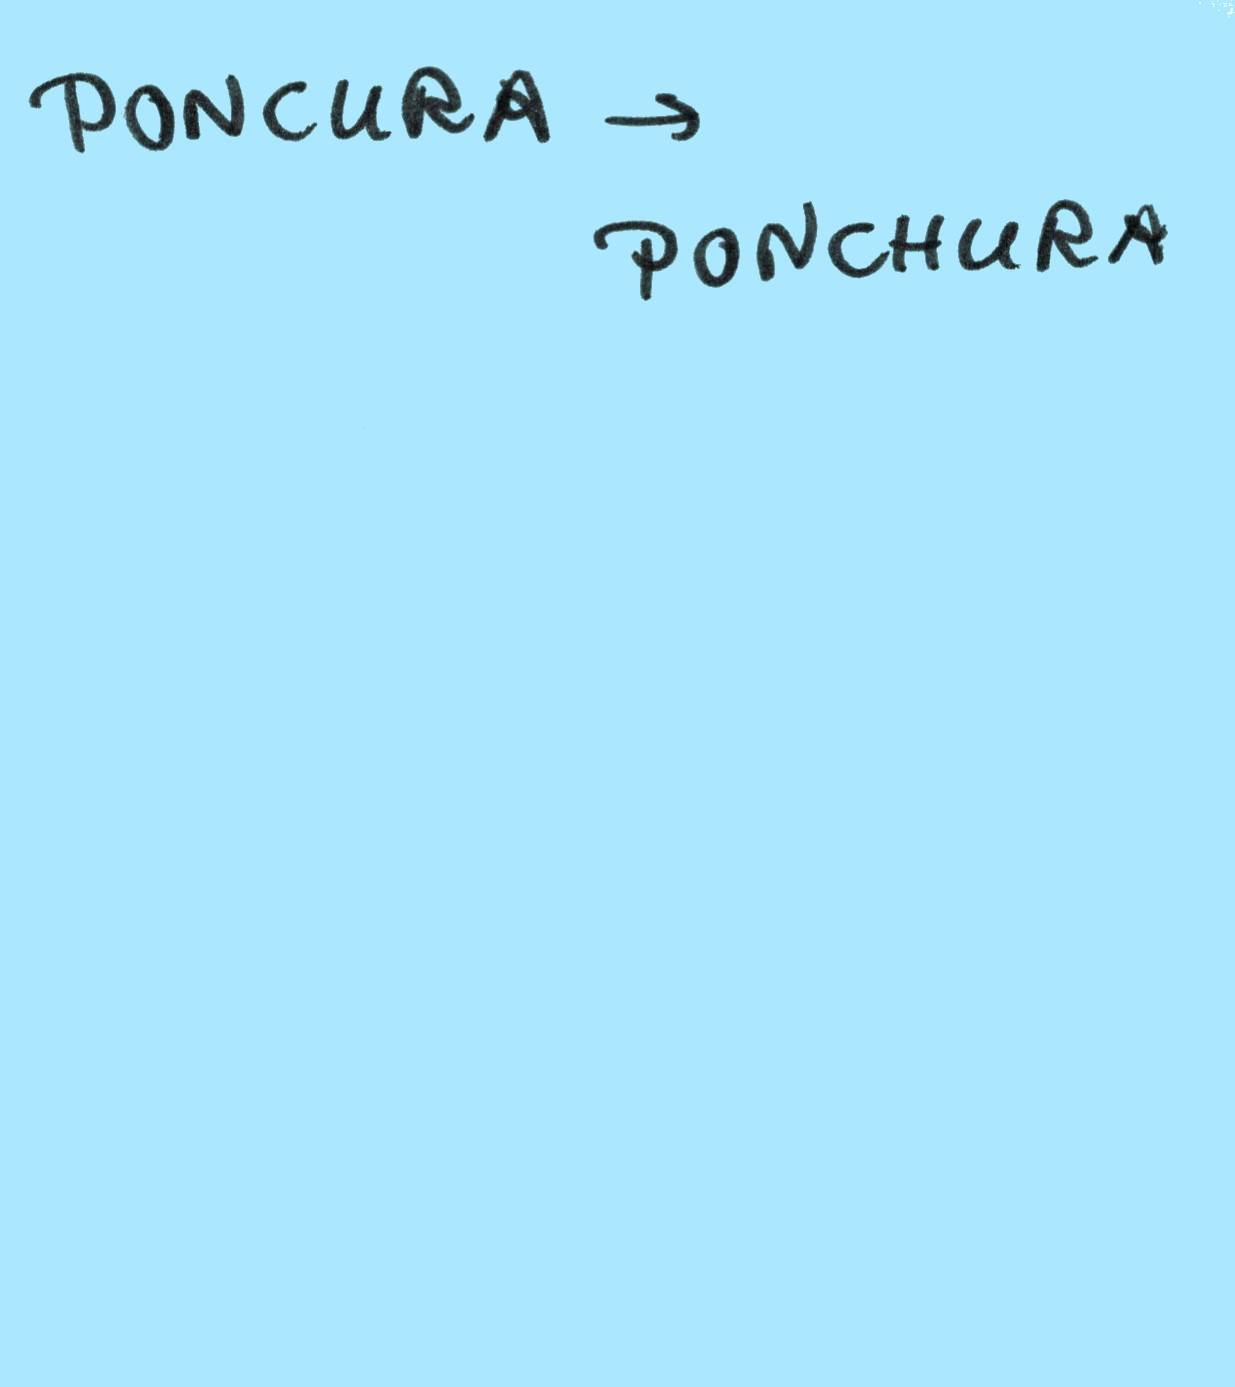 PONCURA →
PONCHURA